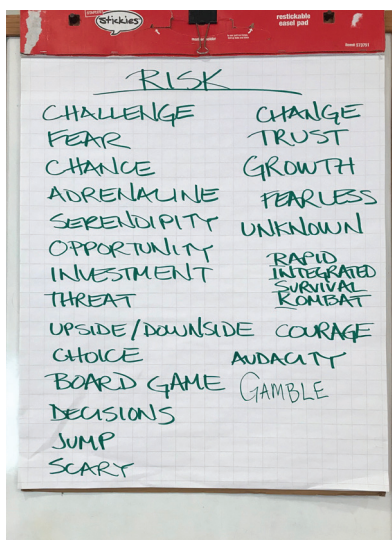 Stickies
restickable
easel pad
RISK
CHALLENGE
FEAR
CHANCE
ADRENALINE
SERENDIPITY
OPPORTUNITY
INVESTMENT
THREAT
UPSIDE/DOWNSIDE
CHOICE
BOARD GAME
DECISIONS
JUMP
SCARY
CHANGE
TRUST
GROWTH
FEARLESS
UNKNOWN
RAPID
INTEGRATED
SURVIVAL
KOMBAT
COURAGE
AUDACITY
GAMBLE